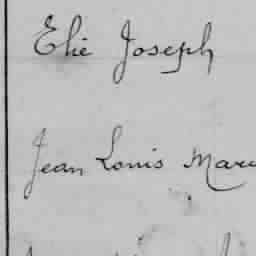 Elie Joseph
Jean Louis